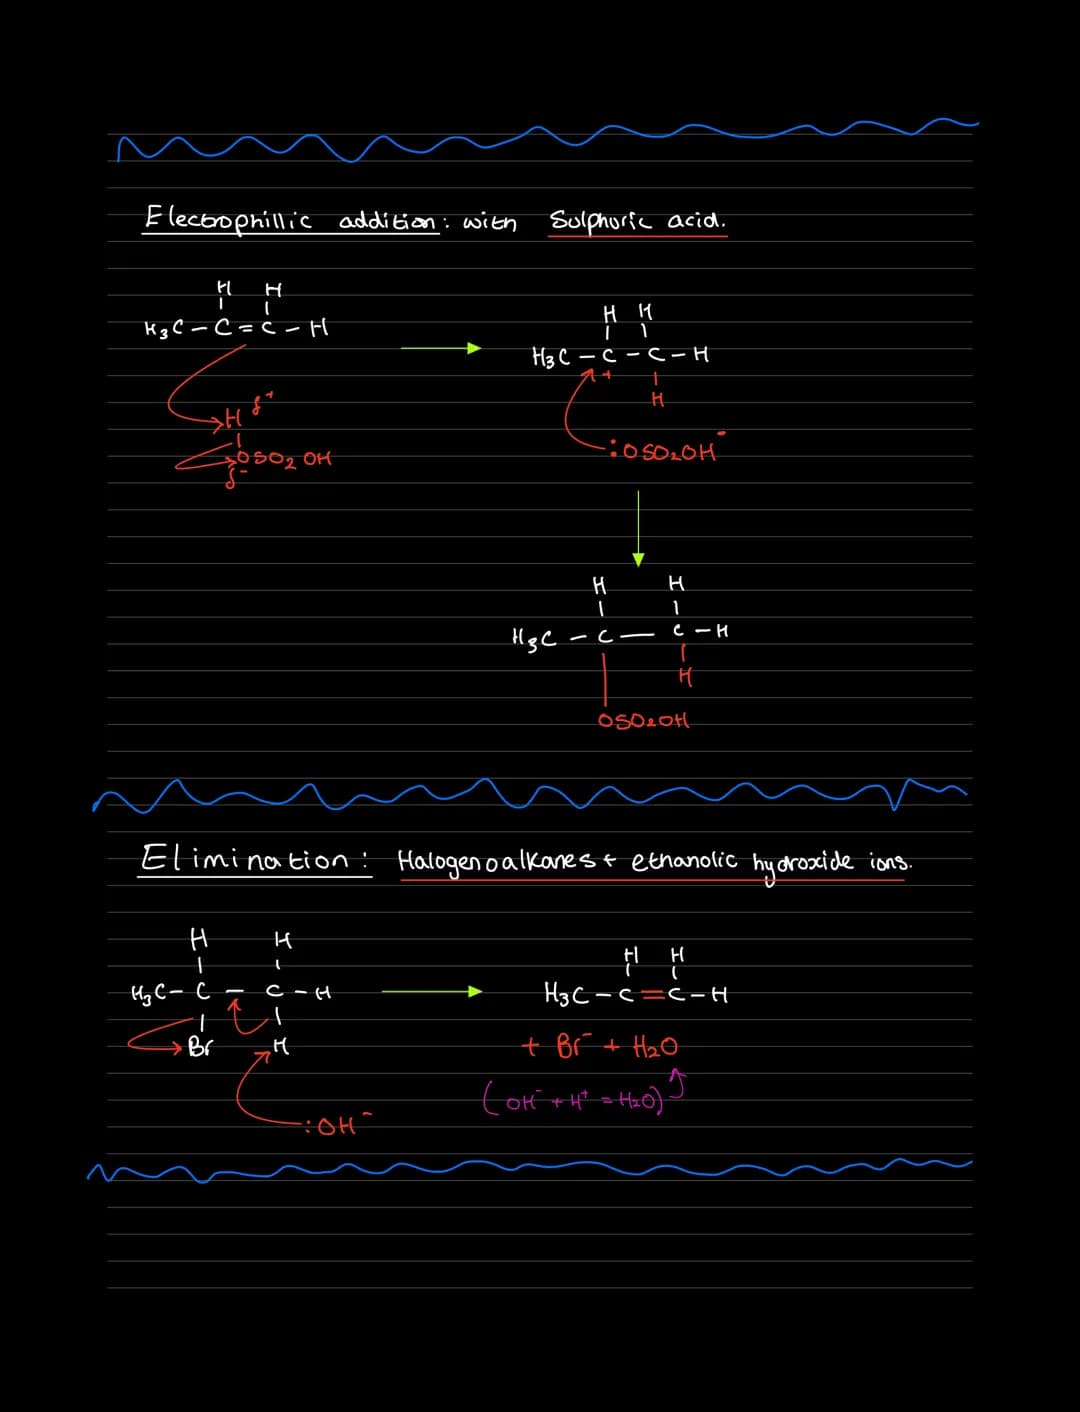 Electrophillic addition: with Sulphuric acid.
H H
H3C - C = C - H
H δ+
OSO2 OH
δ-
H H
H3C - C - C - H
+
H
:OSO2OH-
H H
H3C - C — C - H
H
OSO2OH
Elimination: Halogenoalkanes + ethanolic hydroxide ions.
H H
H3C - C - C - H
Br H
:OH-
H H
H3C - C = C - H
+ Br- + H2O
(OH- + H+ = H2O)